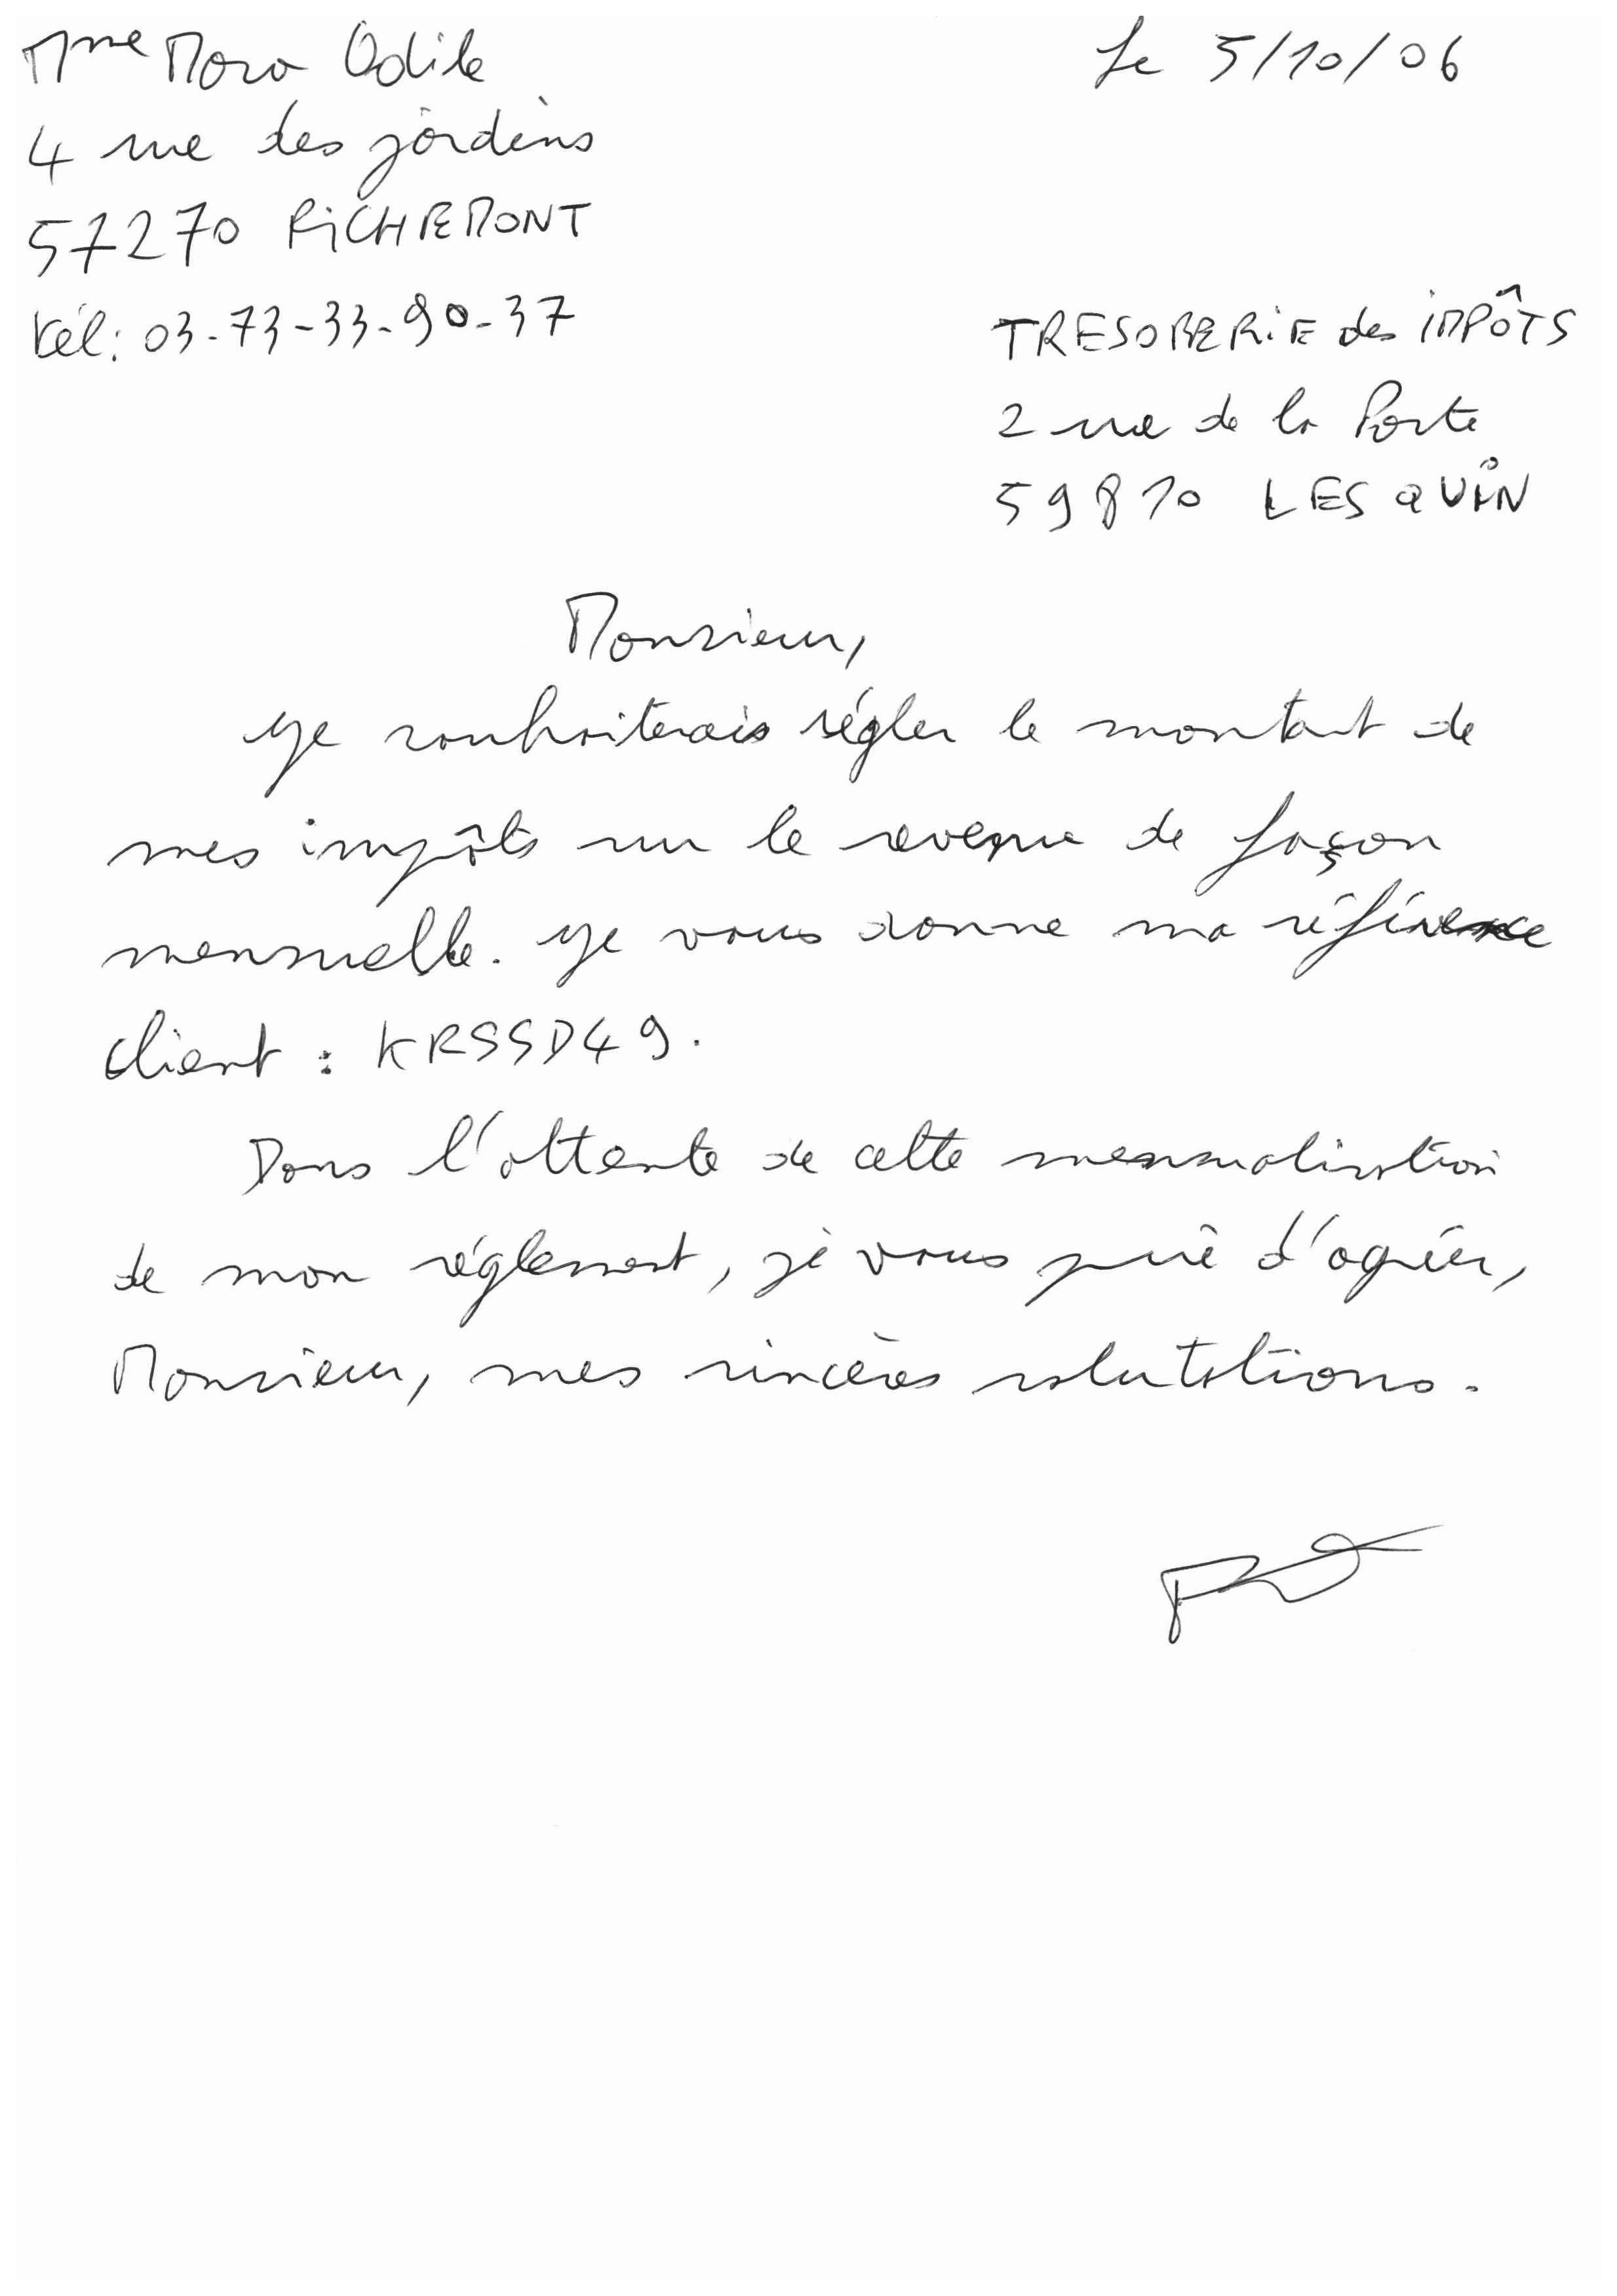 Mme Mora Odile
Le 5/10/06
4 rue des jardins
57270 RICHEMONT
tél: 03-73-33-90-37
TRESORERIE des IMPÔTS
2 rue de la Porte
59810 LESQUIN
Monsieur,
Je souhaiterais régler le montant de
mes impôts sur le revenu de façon
mensuelle. Je vous donne ma référence
client : KRSSD49.
Dans l'attente de cette mensualisation
de mon règlement, je vous prie d'agréer,
Monsieur, mes sincères salutations.